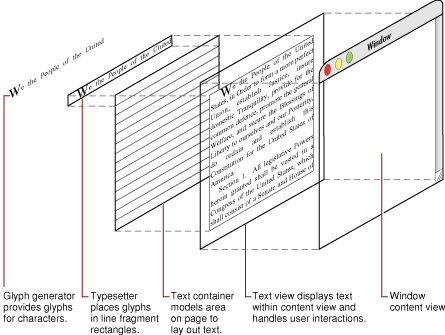 We the People of the United
We the People of the United
We the People of the United
States, in Order to form a more perfect
Union, establish Justice, insure
domestic Tranquility, provide for the
common defence, promote the general
Welfare, and secure the Blessings of
Liberty to ourselves and our Posterity,
do ordain and establish this
Constitution for the United States of
America.
Section 1. All legislative Powers
herein granted shall be vested in a
Congress of the United States, which
shall consist of a Senate and House of
Window
Glyph generator
provides glyphs
for characters.
Typesetter
places glyphs
in line fragment
rectangles.
Text container
models area
on page to
lay out text.
Text view displays text
within content view and
handles user interactions.
Window
content view